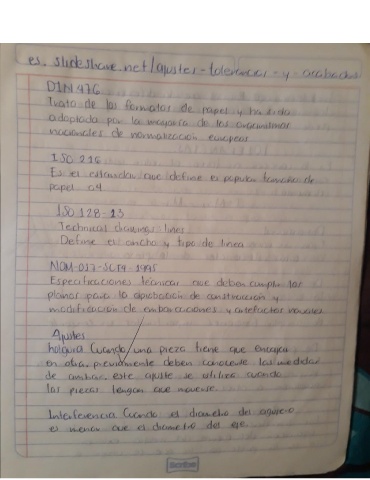 es. slideshare.net/ajustes-tolerancias-y acabados
DIN 476
Trata de los formatos de papel y ha sido
adoptada por la mayoría de los organismos
nacionales de normalización europeos
ISO 216
Es el estandar que define el popular tamaño de
papel a4
ISO 128-23
Technical drawings lines
Define el ancho y tipo de linea
NOM-017-SCT4-1995
Especificaciones técnicas que deben cumplir los
planos para la de construcción y
modificación de embarcaciones y artefactos navales
Ajustes
holgura Cuando una pieza tiene que encajar
en otra, previamente deben conocerse las medidas
de ambas, este ajuste se utiliza cuando
las piezas tengan que moverse.
Interferencia Cuando el diametro del agujero
es menor que el diametro del eje.
Scribe